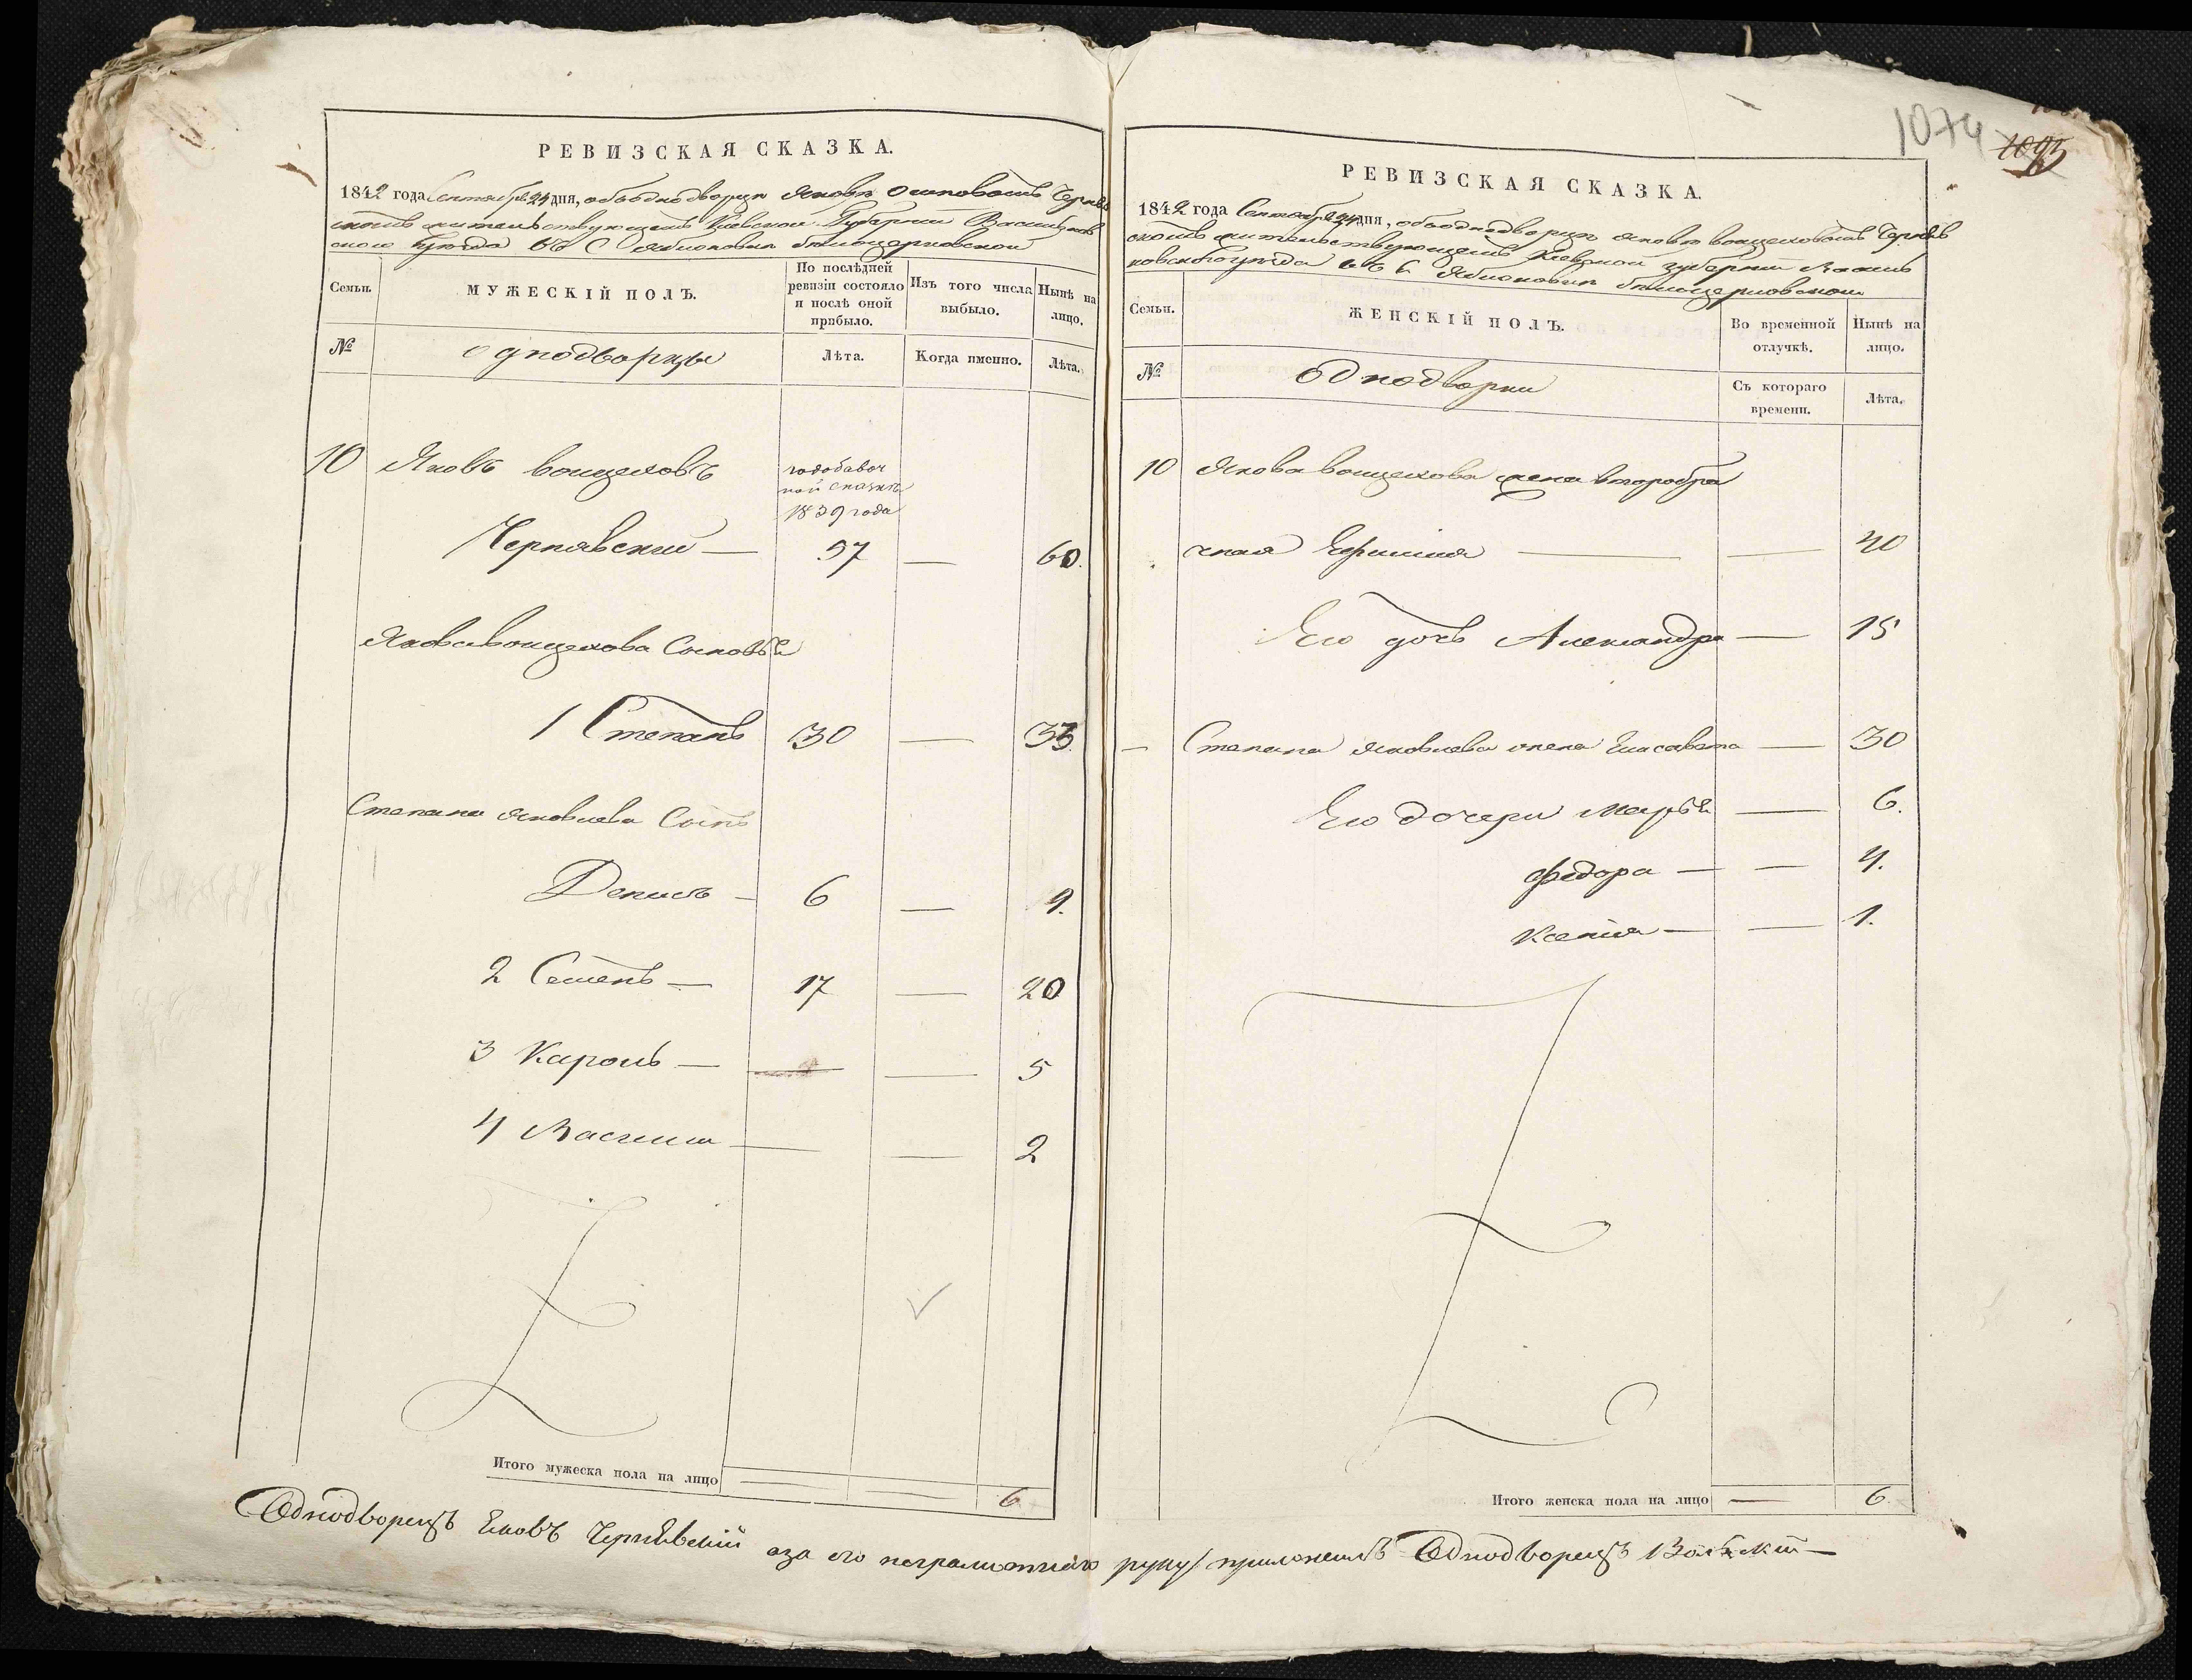 1074
1095
РЕВИЗСКАЯ СКАЗКА.
1842 года Сентября 24 дня, объ однодворцѣ Яковѣ Осиповомъ Черняв
скомъ жительствующемъ Кіевской Губерніи Васильков
скаго Уѣзда въ С Яблоновкѣ бѣлоцерковской
Семьи.
МУЖЕСКІЙ ПОЛЪ.
По послѣдней ревизіи состояло и послѣ оной прибыло.
Изъ того числа выбыло.
Нынѣ на лицо.
№
однодворцы
Лѣта.
Когда именно.
Лѣта.
10 Яковъ воицеховъ
подобавоч
ной сказкѣ
1839 года
Чернявский — 57 — 60.
Якова воицехова Сыновья
1 Степанъ 30 — 33.
Степана Яковлева Сынъ
Денисъ — 6 — 9.
2 Семенъ — 17 — 20
3 Кароль — — — 5
4 Василий — — 2
Итого мужеска пола на лицо — — 6
РЕВИЗСКАЯ СКАЗКА.
1842 года Сентября 24 дня, объ однодворцѣ Яковѣ воицеховомъ Черняв
скомъ жительствующемъ Кіевской губерніи Василь
ковского уѣзда въ с Яблоновкѣ бѣлоцерковской
Семьи.
ЖЕНСКІЙ ПОЛЪ.
Во временной отлучкѣ.
Нынѣ на лицо.
№
однодворки
Съ котораго времени.
Лѣта.
10 Якова воицехова жена второбра
чная Ефимия — — 40
Его дочь Александра — 15
— Степана Яковлева жена Елисавета — 30
Его дочери Марья — 6.
федора — — 4.
Ксения — — 1.
Итого женска пола на лицо — 6.
Однодворецъ Яковъ Чернявский а за его неграмотнаго руку приложилъ Однодворецъ